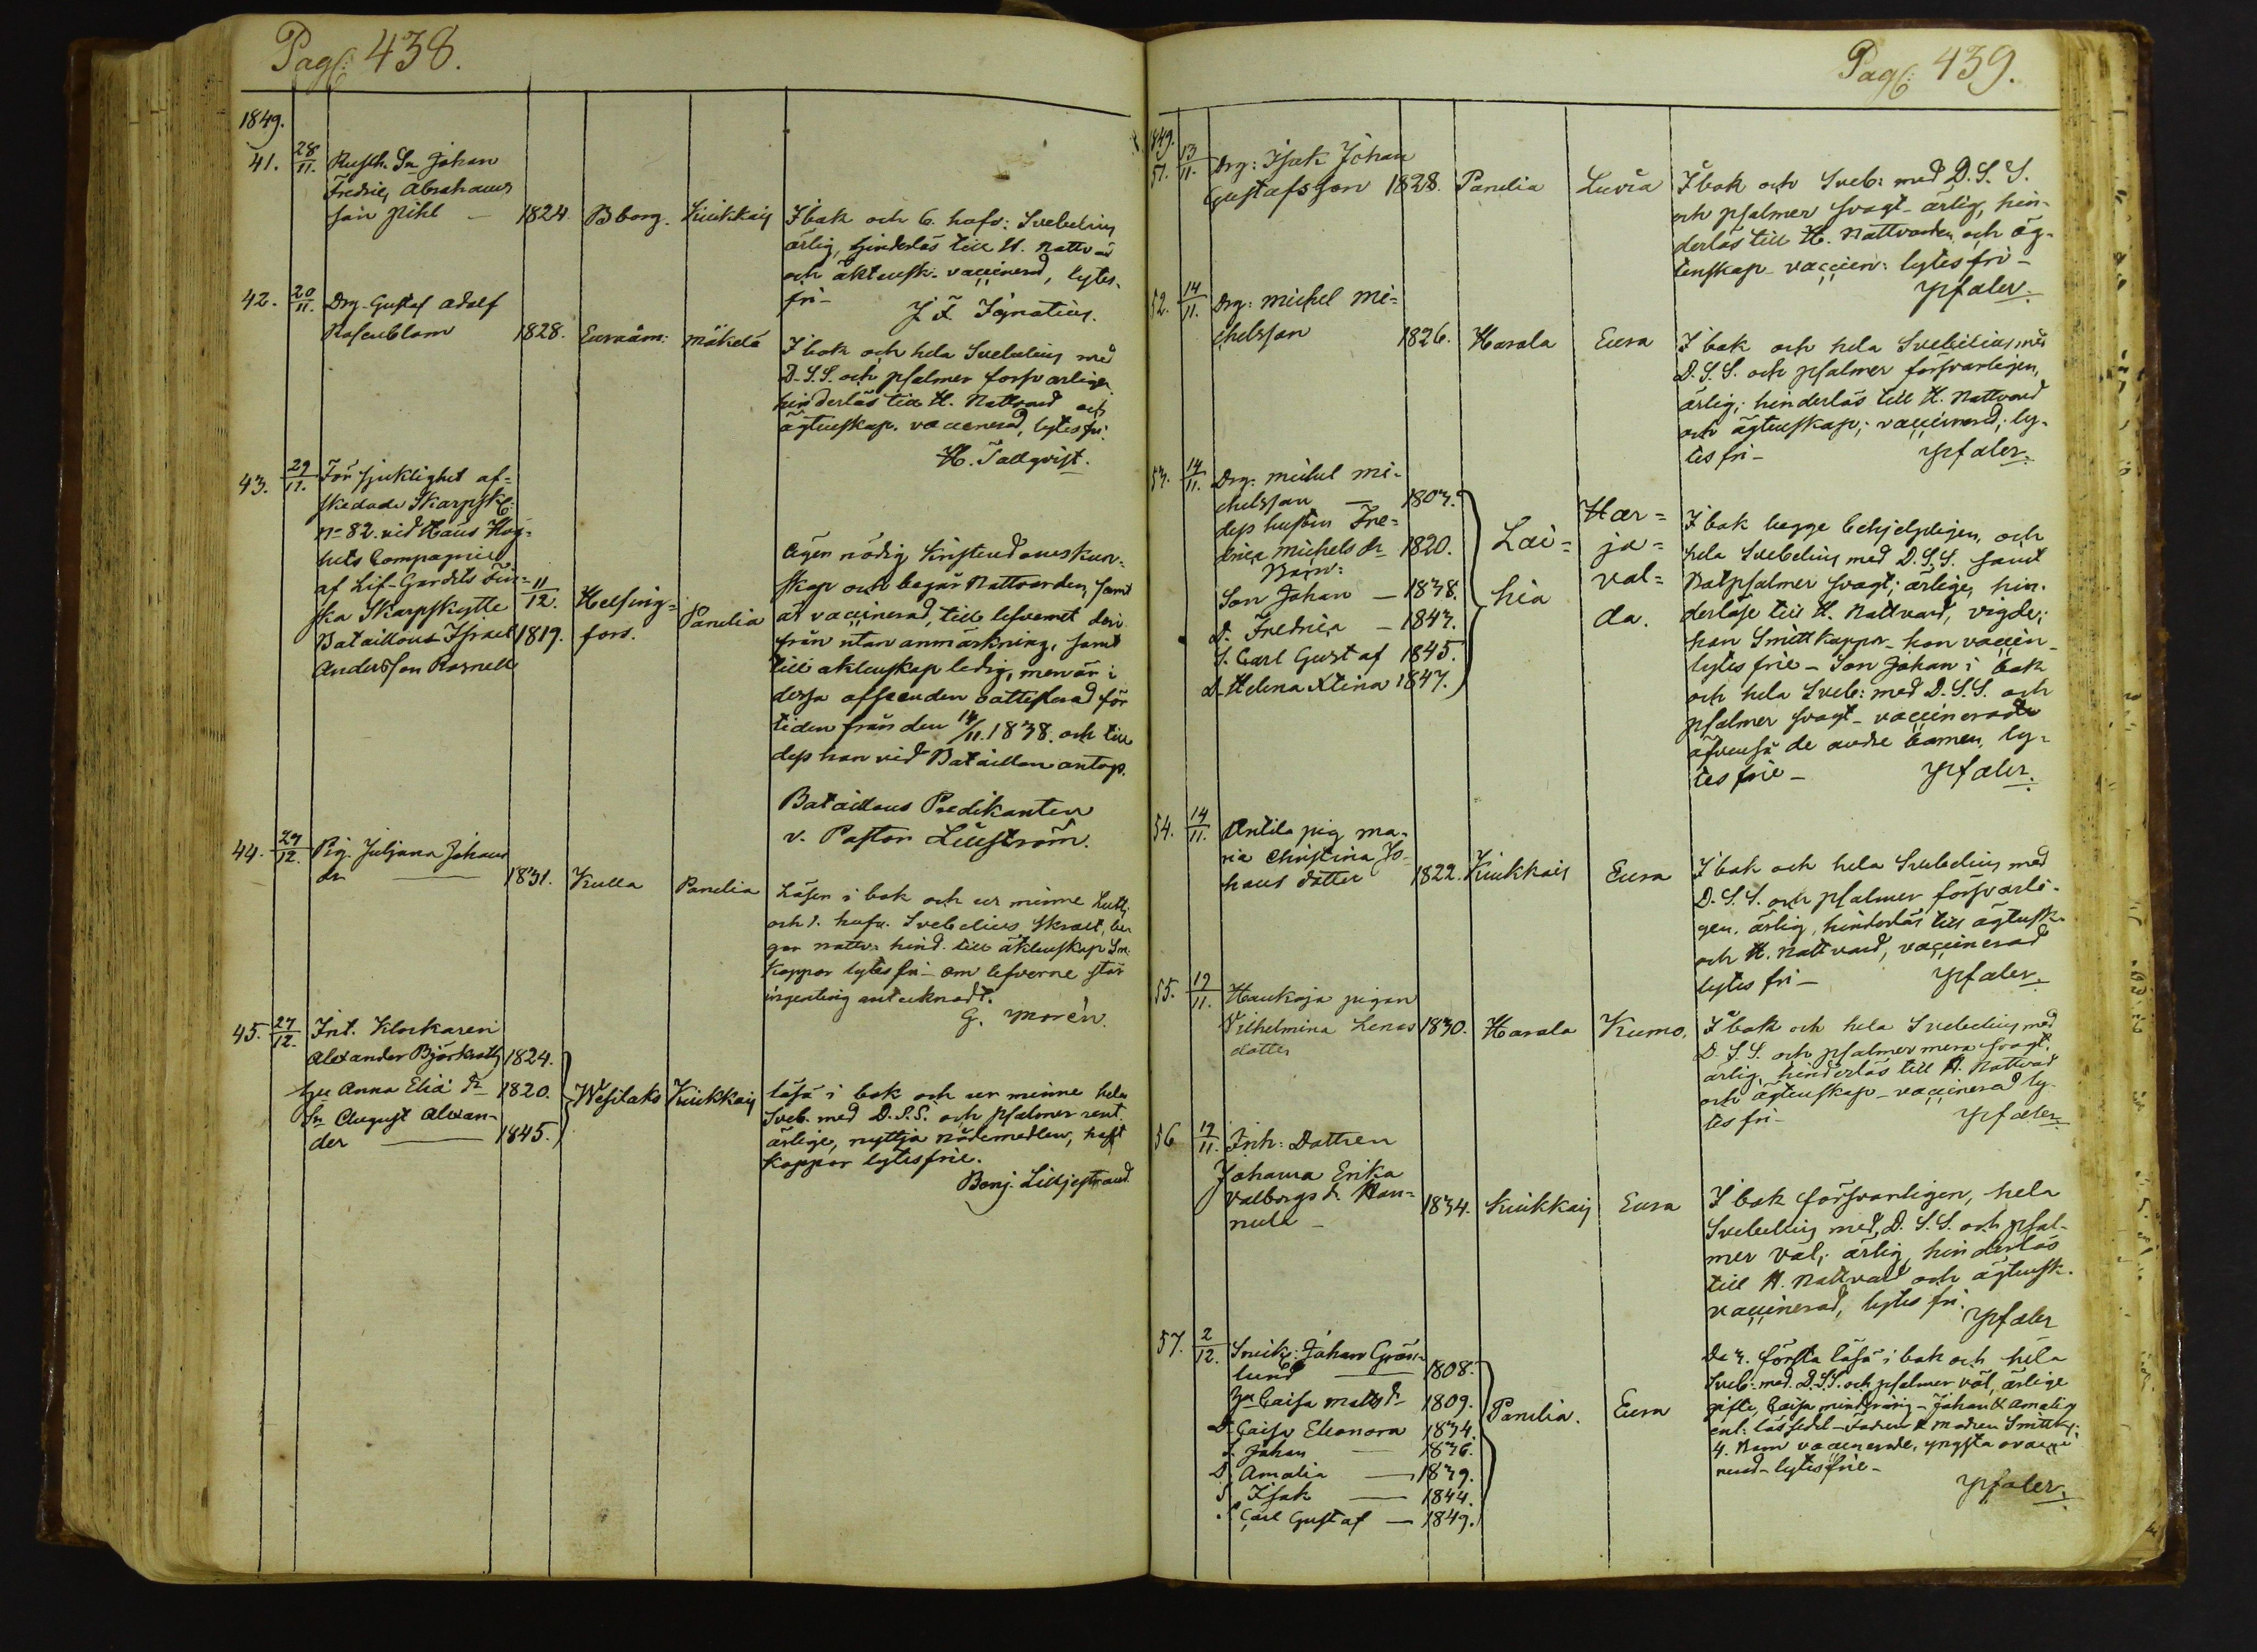 Pag: 438.
1849.
41. 28/11. Rusth. Sn Johan
Fredric Abrahams
son Pihl — 1824. Bborg. Kiukkais
I bok och 6. hufv: Svebelius
ärlig, hinderlös till H. Nattvard
och äktensk. vaccinerad, lytes-
fri- J. F. Ignatius.
42. 20/11. Drg. Gustaf Adolf
Rosenblom 1828. Euraåm: Mäkelä
I bok och hela Svebelius med
D. S. S. och psalmer försvarligen
hinderlös till H. Nattvard och
ägtenskap. vaccinerad, lytesfri.
H. Tallqvist.
43. 29/11. För sjuklighet af-
skedade Skarpsk:
N= 82. vid Hans Hög-
hets Compagnie
af Lif-Gardets Fin-
ska Skarpskytte 11/12. Helsing-
Bataillons Israel 1819. fors. Panelia
Andersson Rosnell
Ägen nödig Kristendomskun-
skap och begår Nattvarden, samt
är vaccinerad, till lefvernet deri
från utan anmärkning, samt
till äktenskap ledig, men är i
dessa afseenden oattesterad för
tiden från den 14/11. 1838. och till
dess han vid Bataillon antogs.
Bataillons Predikanten
v. Pastor Lilljström.
44. 27/12. Pig. Juljana Johans
dr — 1831. Kulla Panelia
Läsen i bok och ur minne Luth.
och 1. hufv. Svebelius Skralt, be-
går nattv. hind. till äktenskap Sm.
Koppor lytesfri - om lefverne står
ingenting antecknadt.
G. Morén.
45. 27/12. Int. Klockaren
Alexander Björkroth 1824.
Hu Anna Elia dr 1820. Wesilaks Kiukkais
Sn August Alexan-
der — 1845.
läsa i bok och ur minne hela
Sveb. med D. S. S. och psalmer rent.
ärlige, nyttja nådemedlen, haft
Koppor lytesfrie.
Benj. Lilljestrand
Pag: 439.
1849.
51. 13/11. Drg: Isak Johan
Gustafsson 1828. Panelia Luvia
I bok och Sveb: med D. S. S.
och psalmer svagt- ärlig, hin-
derlös till H. Nattvarden och äg-
tenskap- vaccin: lytesfri-
Ypfaler.
52. 14/11. Drg: Michel Mi-
chelsson 1826. Harola Eura
I bok och hela Svebelius med
D. S. S. och psalmer försvarligen,
ärlig; hinderlös till H. Nattvard
och ägtenskap; vaccinerad; ly-
tesfri- Ypfaler.
53. 14/11. Drg: Michel Mi-
chelsson — 1803.
dess hustru Fre-
drica Michels dr 1820.
Barn:
Son Johan — 1838.
D. Fredrica — 1843.
S. Carl Gustaf 1845.
D. Helena Xtina 1847.
Lai-
hia
Har-
ja-
val-
da.
I bok begge behjelpligen, och
hela Svebelius med D. S. S. samt
Botpsalmer svagt; ärlige, hin-
derlöse till H. Nattvard, vigde;
han Smittkoppor- hon vaccin-
lytesfrie- Son Johan i bok
och hela Sveb: med D. S. S. och
psalmer svagt- vaccinerade
äfvenså de andre barnen, ly-
tesfrie- Ypfaler.
54. 14/11. Antila pig Ma-
ria Christina Jo-
hans dotter 1822. Kiukkais Eura
I bok och hela Svebelius med
D. S. S. och psalmer försvarli-
gen, ärlig, hinderlös till ägtensk-
och H. Nattvard, vaccinerad
lytesfri- Ypfaler.
55. 19/11. Haukoja pigan
Vilhelmina Lenas 1830. Harola Kumo.
dotter
I bok och hela Svebelius med
D. S. S. och psalmer mera svagt,
ärlig, hinderlös till H. Nattvard
och ägtenskap- vaccinerad ly-
tesfri- Ypfaler.
56 19/11. Inh: Dottren
Johanna Erika
Valborgs dr Han-
nula - 1834. Kiukkais Eura
I bok försvarligen, hela
Svebelius med, D. S. S. och psal-
mer väl; ärlig, hinderlös
till H. Nattvard och ägtensk.
vaccinerad, lytesfri.
Ypfaler
57. 2/12. Snick: Johan Grön-
lund — 1808.
Hu Caisa Matts dr 1809. Panelia. Eura
D Caisa Eleonora 1834.
S. Johan — 1836.
D. Amalia — 1839.
S. Isak — 1844.
S Carl Gustaf — 1849.
De 3. första läsa i bok och hela
Sveb: med D. S. S. och psalmer väl, ärlige
gifte, Caisa minderårig- Johan & Amalia
enl: läs sedel- Fadren & Modren Smittk:
4. Barn vaccinerade, yngsta ovacci
nerad- lytesfrie-
Ypfaler.